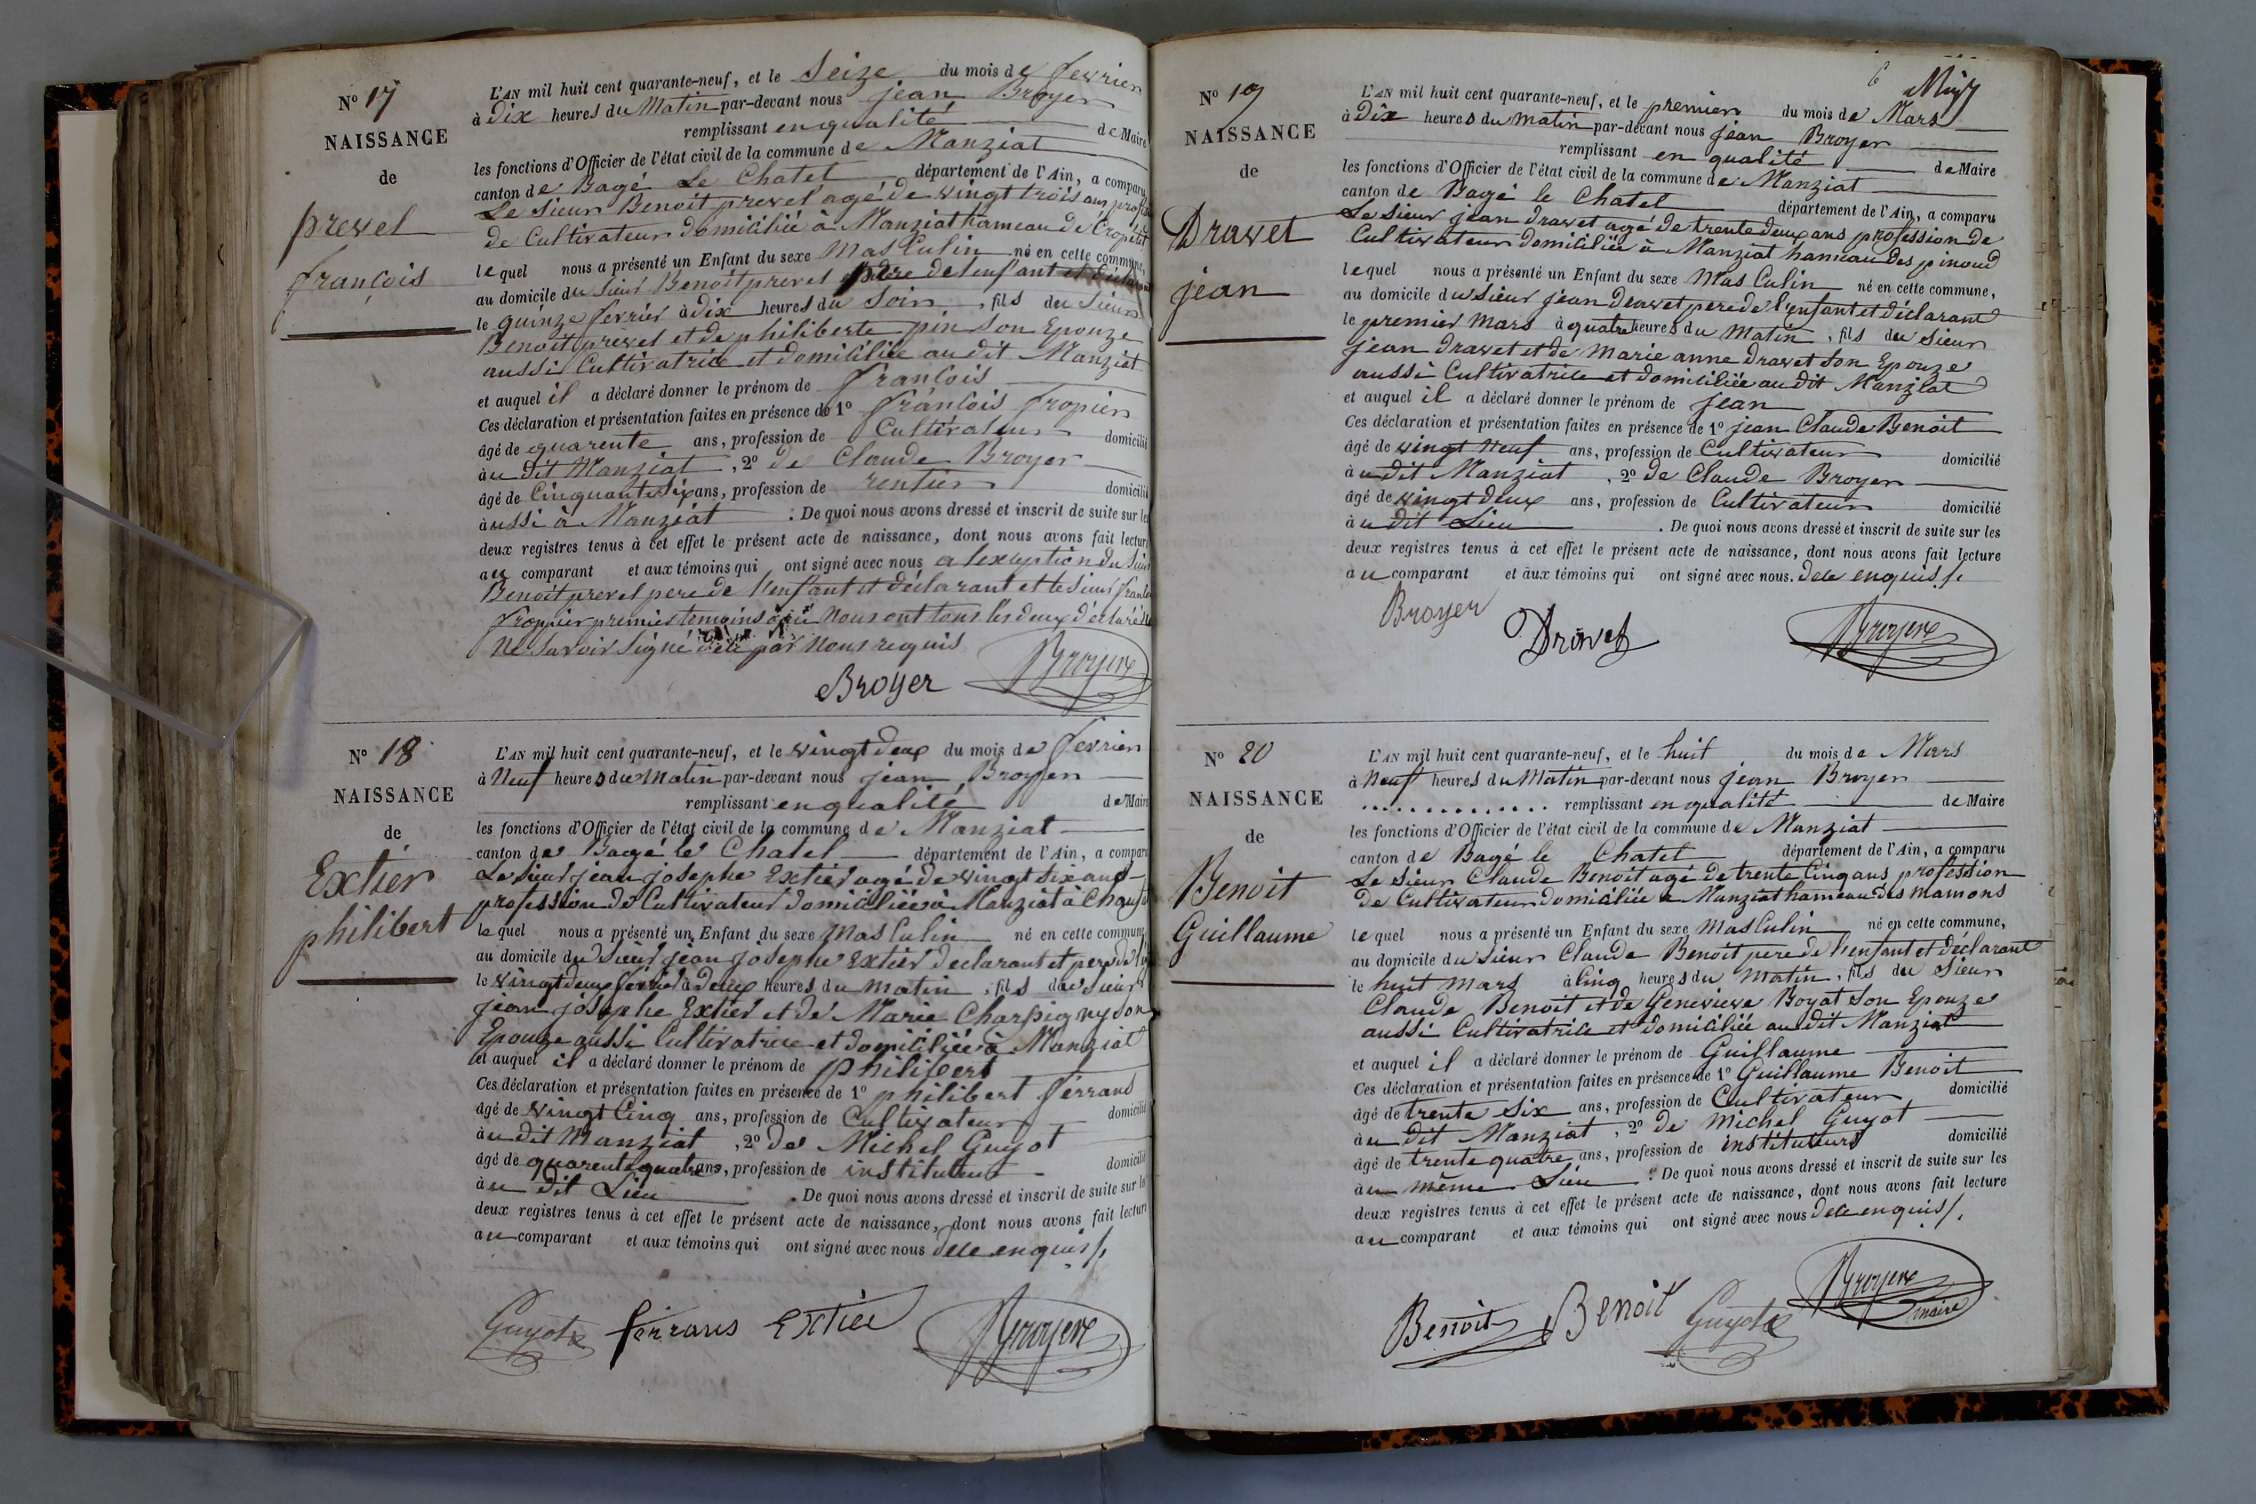 N° 17
NAISSANCE
de
prevel
françois
L'AN mil huit cent quarante-neuf, et le Seize du mois de fevrier
à Dix heures du Matin par-devant nous jean Broyer
remplissant en qualité de Maire
les fonctions d'Officier de l'état civil de la commune de Manziat
canton de Bagé Le Chatel département de l'Ain, a comparu
Le sieur Benoit prevel agé de vingt trois ans
de Cultivateur domicilié à Manziat hameau de Cropetet
lequel nous a présenté un Enfant du sexe Masculin né en cette commune,
au domicile du sieur Benoit prevel père de l'enfant
le quinze fevrier à dix heures du Soir, fils du sieur
Benoit prevel et de philiberte pinson Epouze
aussi Cultivatrice et domiciliée au dit Manziat
et auquel il a déclaré donner le prénom de françois
Ces déclaration et présentation faites en présence de 1° françois fropier
âgé de quarente ans, profession de Cultivateur domicilié
au dit Manziat, 2° de Claude Broyer
âgé de Cinquante Six ans, profession de rentier domicilié
aussi à Manziat. De quoi nous avons dressé et inscrit de suite sur les
deux registres tenus à cet effet le présent acte de naissance, dont nous avons fait lecture
au comparant et aux témoins qui ont signé avec nous a lexception du Sieur
Benoit prevel pere de l'enfant et déclarant et le sieur
fropier premier temoins Nous ont tous les deux déclaré
Ne Savoir Signé par Nous requis
Broyer Broyer
N° 18
NAISSANCE
de
Extier
philibert
L'AN mil huit cent quarante-neuf, et le vingt deux du mois de fevrier
à Neuf heures du Matin par-devant nous jean Broyer
remplissant en qualité de Maire
les fonctions d'Officier de l'état civil de la commune de Manziat
canton de Bagé le Chatel département de l'Ain, a comparu
Le sieur jean josephe Extier agé de vingt six ans
profession de Cultivateur domicilié à Manziat à
lequel nous a présenté un Enfant du sexe Masculin né en cette commune
au domicile du sieur jean josephe Extier declarant et pere de
le vingt deux fevrier à deux heures du matin, fils du sieur
jean josephe Extier et de Marie Charpigny son
Epouze aussi Cultivatrice et domiciliée à Manziat
et auquel il a déclaré donner le prénom de Philibert
Ces déclaration et présentation faites en présence de 1° philibert ferrand
âgé de vingt Cinq ans, profession de Cultivateur domicilié
au dit Manziat, 2° de Michel Guyot
âgé de quarente quatre ans, profession de instituteur domicilié
au dit Lieu. De quoi nous avons dressé et inscrit de suite sur les
deux registres tenus à cet effet le présent acte de naissance, dont nous avons fait lecture
au comparant et aux témoins qui ont signé avec nous dece enquis
Guyot ferrand Extier Broyer
N° 19
NAISSANCE
de
Dravet
jean
6
L'AN mil huit cent quarante-neuf, et le premier du mois de Mars
à Dix heures du matin par-devant nous jean Broyer
remplissant en qualité de Maire
les fonctions d'Officier de l'état civil de la commune de Manziat
canton de Bagé le Chatel département de l'Ain, a comparu
Le sieur jean dravet agé de trente deux ans profession de
Cultivateur domicilié à Manziat hameau des pinoud
lequel nous a présenté un Enfant du sexe Masculin né en cette commune,
au domicile du sieur jean dravet pere de l'enfant et déclarant
le premier Mars à quatre heures du Matin, fils du sieur
jean dravet et de Marie anne dravet Son Epouze
aussi Cultivatrice et domiciliée au dit Manziat
et auquel il a déclaré donner le prénom de jean
Ces déclaration et présentation faites en présence de 1° jean Claude Benoit
âgé de vingt Neuf ans, profession de Cultivateur domicilié
au dit Manziat, 2° de Claude Broyer
âgé de vingt deux ans, profession de Cultivateur domicilié
au dit Lieu. De quoi nous avons dressé et inscrit de suite sur les
deux registres tenus à cet effet le présent acte de naissance, dont nous avons fait lecture
au comparant et aux témoins qui ont signé avec nous. dece enquis
Broyer Dravet Broyer
N° 20
NAISSANCE
de
Benoit
Guillaume
L'AN mil huit cent quarante-neuf, et le huit du mois de Mars
à Neuf heures du Matin par-devant nous jean Broyer
remplissant en qualité de Maire
les fonctions d'Officier de l'état civil de la commune de Manziat
canton de Bagé le Chatel département de l'Ain, a comparu
Le sieur Claude Benoit agé de trente Cinq ans profession
de Cultivateur domicilié à Manziat hameau des mamons
lequel nous a présenté un Enfant du sexe Masculin né en cette commune,
au domicile du sieur Claude Benoit pere de l'enfant et déclarant
le huit Mars à Cinq heures du Matin, fils du Sieur
Claude Benoit et de Genevieve Boyat Son Epouze
aussi Cultivatrice et domiciliée au dit Manziat
et auquel il a déclaré donner le prénom de Guillaume
Ces déclaration et présentation faites en présence de 1° Guillaume Benoit
âgé de trente Six ans, profession de Cultivateur domicilié
au dit Manziat, 2° de Michel Guyot
âgé de trente quatre ans, profession de instituteurs domicilié
au même Lieu. De quoi nous avons dressé et inscrit de suite sur les
deux registres tenus à cet effet le présent acte de naissance, dont nous avons fait lecture
au comparant et aux témoins qui ont signé avec nous dece enquis
Benoit Benoit Guyot Broyer maire